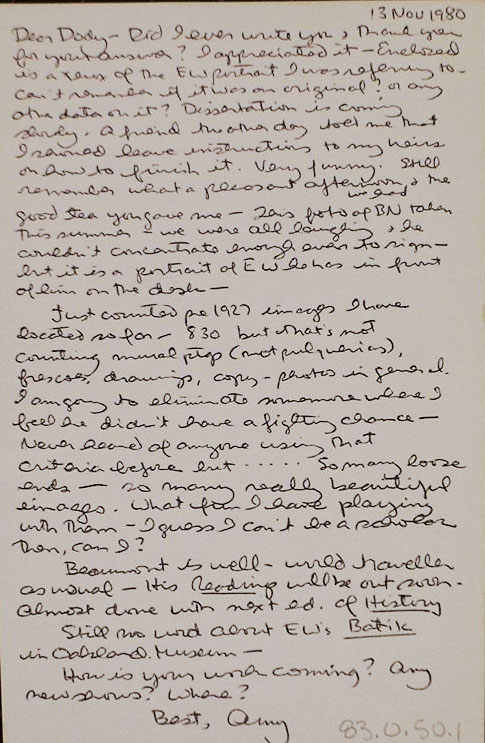 13 Nov 1980
Dear Dody - Did I ever write you & thank you
for your answer? I appreciated it - Enclosed
is a xerox of the EW portrait I was referring to.
Can't remember if it was an original? or any
other data on it? Dissertation is coming
slowly. A friend the other day told me that
I should leave instructions to my heirs
on how to finish it. Very funny. Still
remember what a pleasant afternoon we had & the
good tea you gave me - This foto of BN taken
this summer - we were all laughing & he
couldn't concentrate enough even to sign -
but it is a portrait of EW he has in front
of him on the desk -
Just counted pre 1927 images I have
located so far - 830 but that's not
counting mural ptgs (not pulquerias),
frescoes, drawings, copy-photos in general.
I am going to eliminate some more where I
feel he didn't have a fighting chance -
Never heard of anyone using that
criteria before but ..... So many loose
ends - so many really beautiful
images. What fun I have playing
with them - I guess I can't be a scholar
then, can I?
Beaumont is well - world traveller
as usual - His Reading will be out soon.
Almost done with next ed. of History
Still no word about EW's Batik
in Oakland Museum -
How is your work coming? Any
new shows? Where?
Best, Amy
83.0.50.1